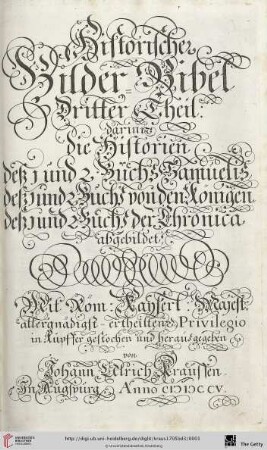 Historischer
Bilder-Bibel
Dritter Theil.
darinn
die Historien
deß 1 und 2. Buchs Samuelis
deß 1 und 2 Buchs von den Königen
deß 1 und 2 Buchs der Chronica
abgebildet.
Mit Röm. Kayserl. Majest.
allergnädigst-ertheiltem Privilegio
in Kupffer gestochen und herausgegeben
von
Johann Ulrich Kraussen
In Augspurg. Anno CIↃIↃCCV.
http://digi.ub.uni-heidelberg.de/diglit/
The Getty